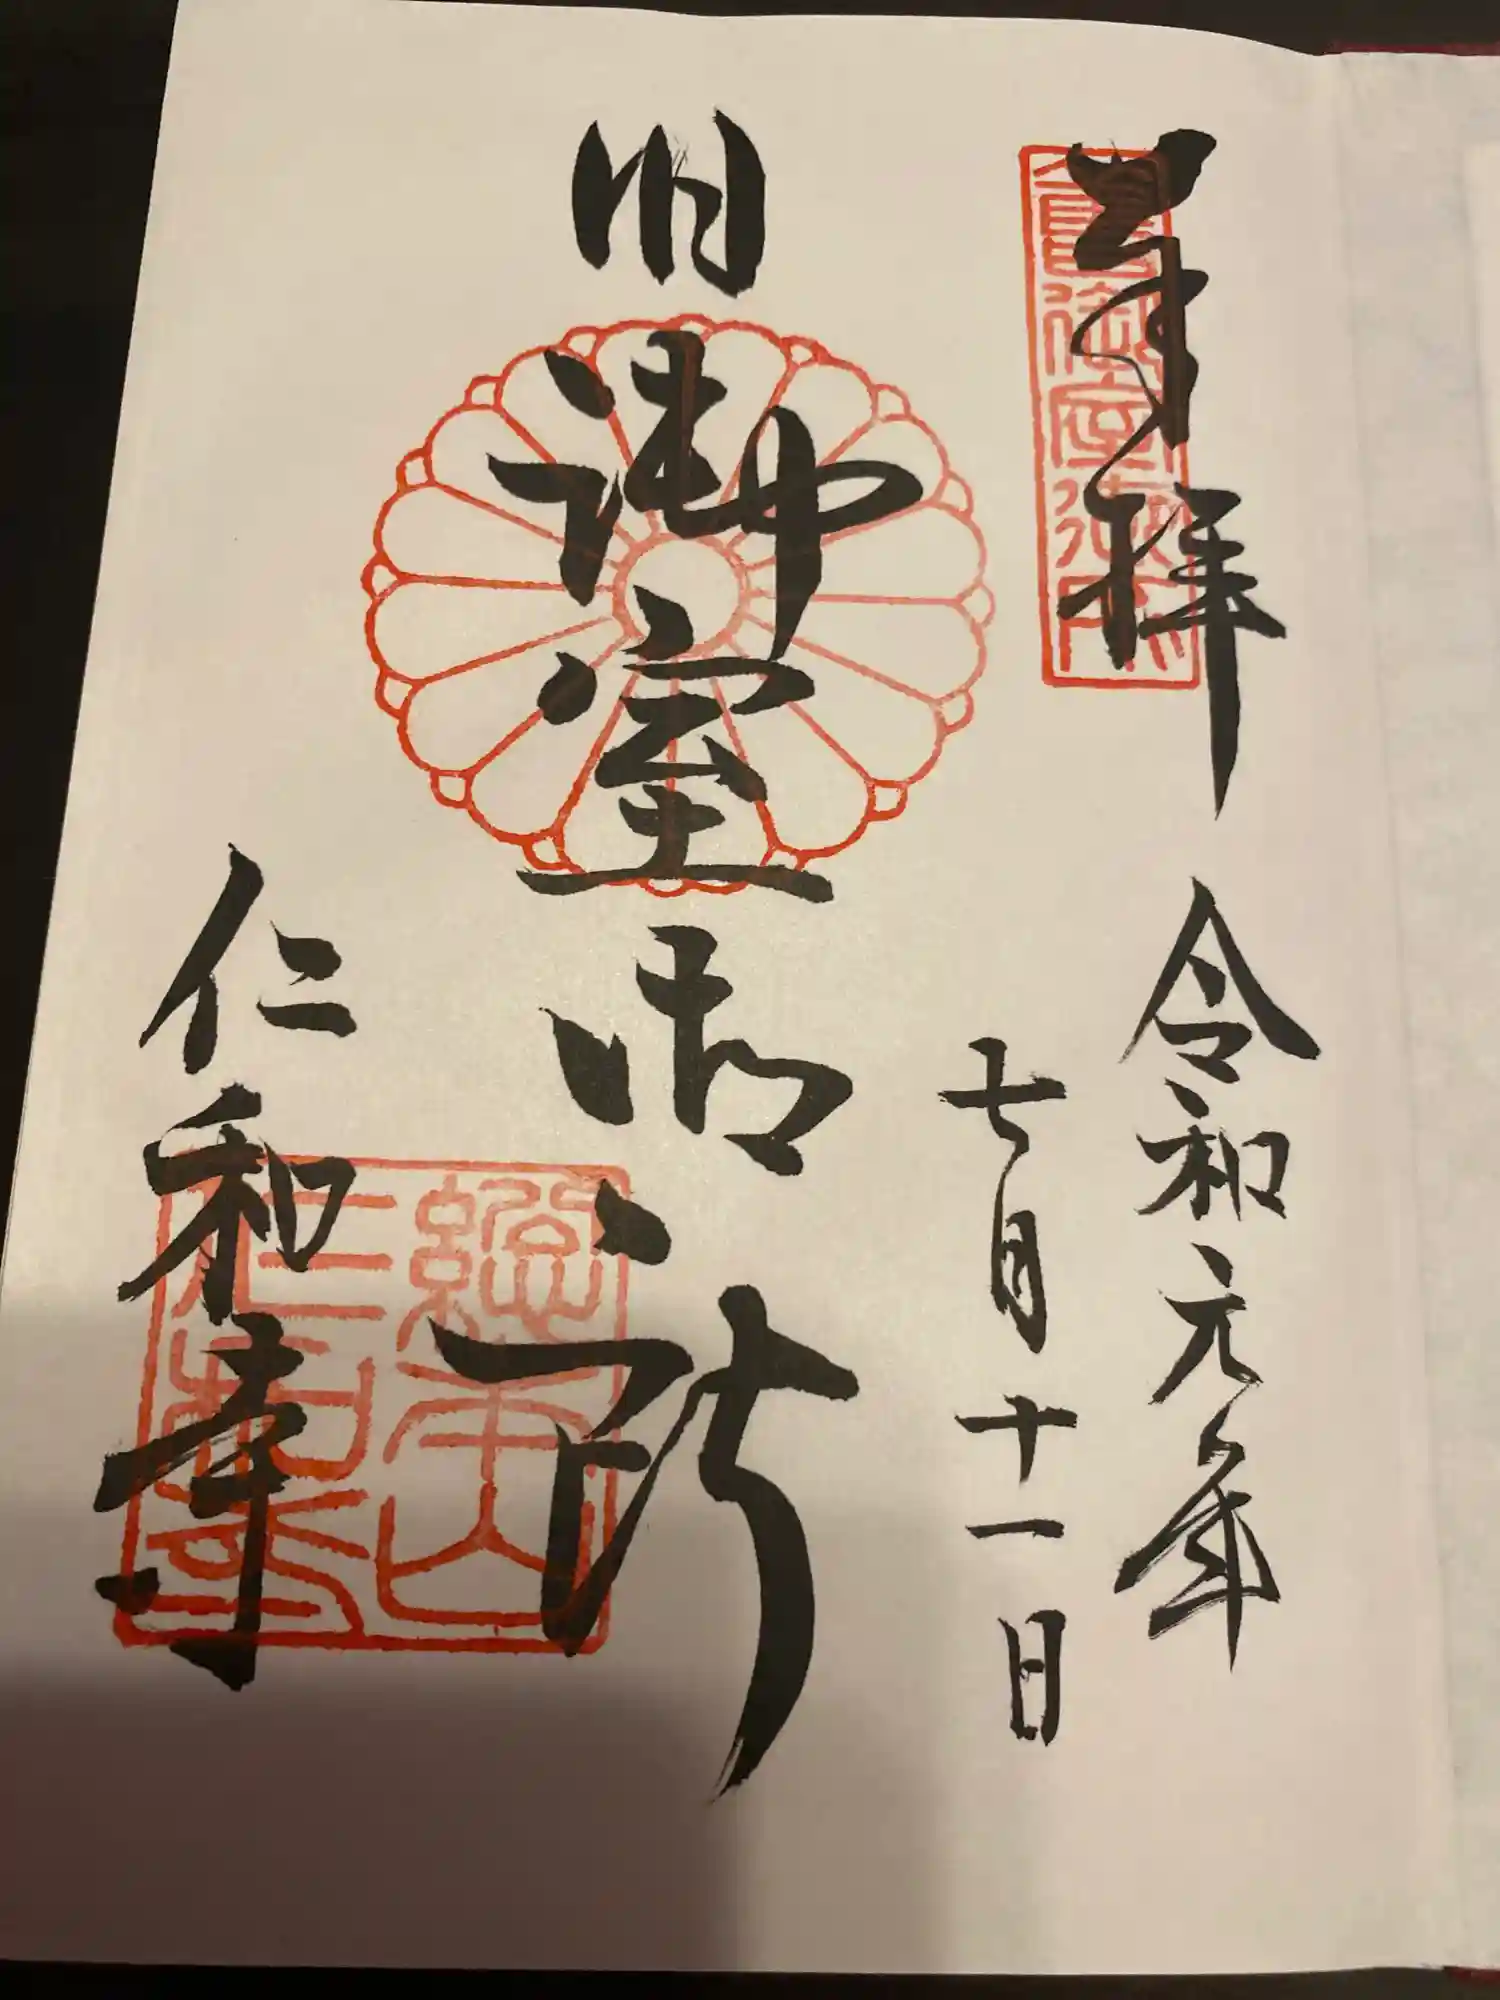 奉拝
令和元年
七月十一日
旧御室御所
仁和寺
総本山
仁和寺